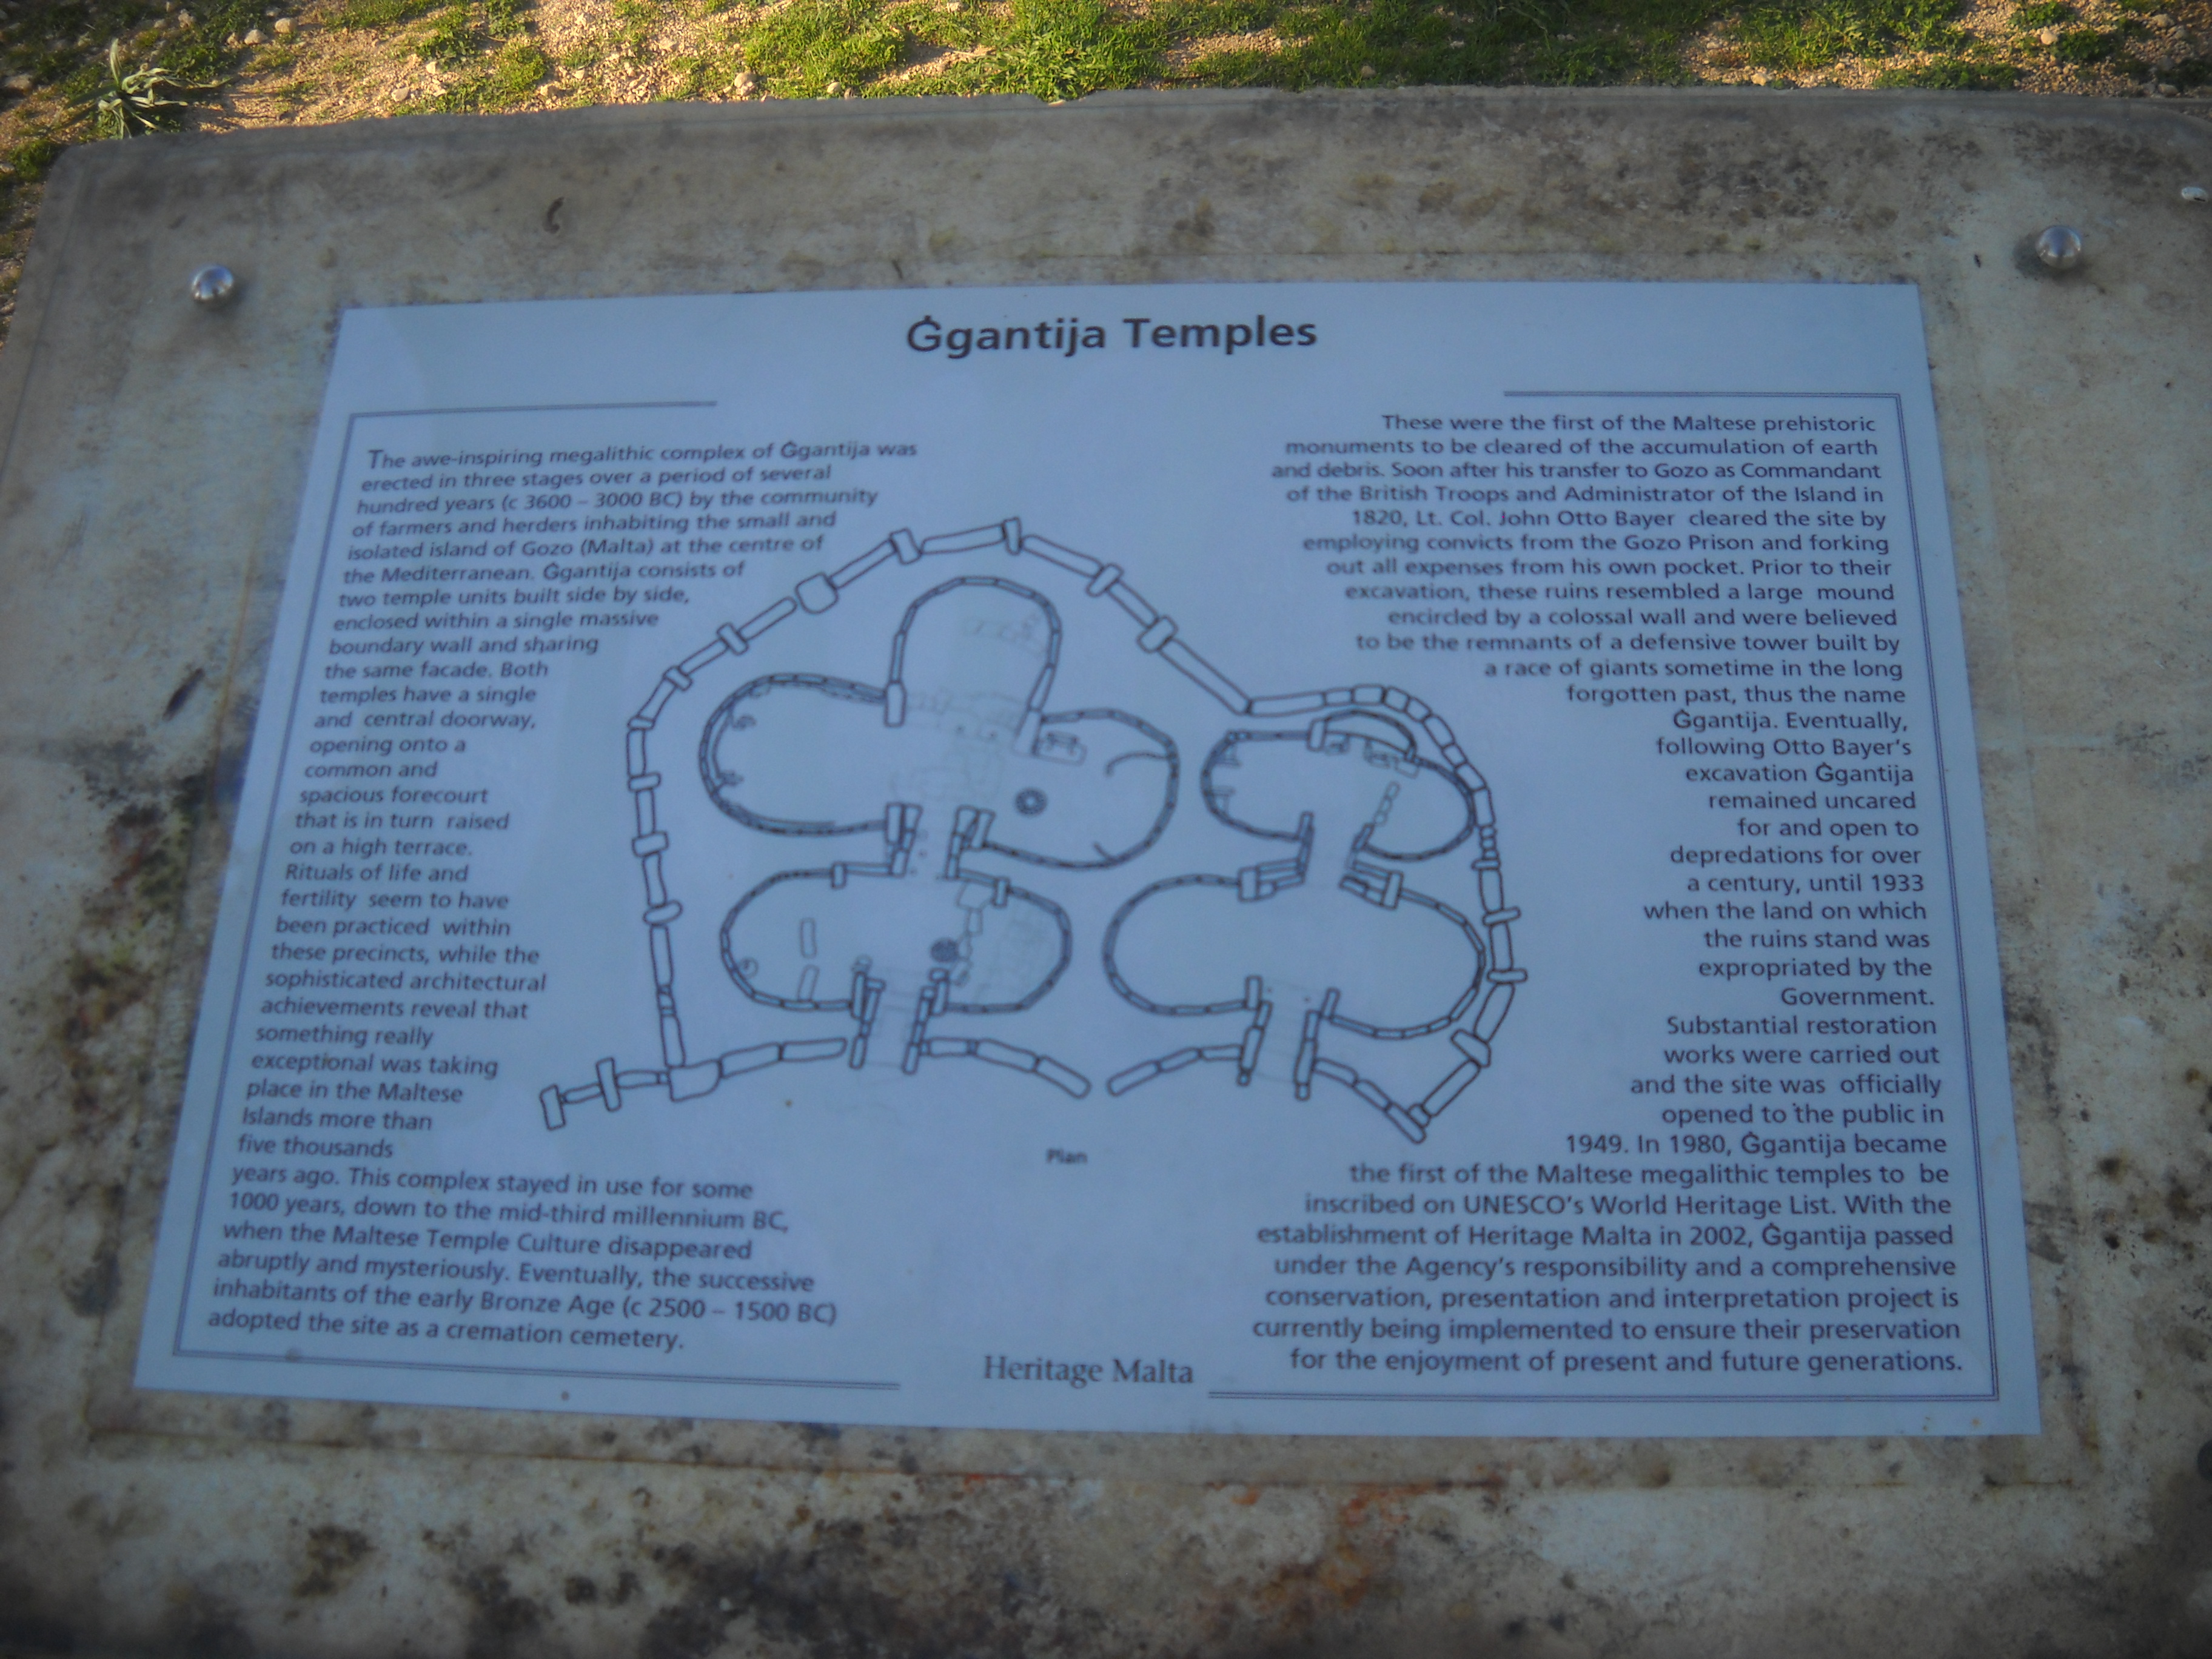 Ġgantija Temples
The awe-inspiring megalithic complex of Ġgantija was
erected in three stages over a period of several
hundred years (c 3600 – 3000 BC) by the community
of farmers and herders inhabiting the small and
isolated island of Gozo (Malta) at the centre of
the Mediterranean. Ġgantija consists of
two temple units built side by side,
enclosed within a single massive
boundary wall and sharing
the same facade. Both
temples have a single
and central doorway,
opening onto a
common and
spacious forecourt
that is in turn raised
on a high terrace.
Rituals of life and
fertility seem to have
been practiced within
these precincts, while the
sophisticated architectural
achievements reveal that
something really
exceptional was taking
place in the Maltese
Islands more than
five thousands
years ago. This complex stayed in use for some
1000 years, down to the mid-third millennium BC,
when the Maltese Temple Culture disappeared
abruptly and mysteriously. Eventually, the successive
inhabitants of the early Bronze Age (c 2500 – 1500 BC)
adopted the site as a cremation cemetery.
These were the first of the Maltese prehistoric
monuments to be cleared of the accumulation of earth
and debris. Soon after his transfer to Gozo as Commandant
of the British Troops and Administrator of the Island in
1820, Lt. Col. John Otto Bayer cleared the site by
employing convicts from the Gozo Prison and forking
out all expenses from his own pocket. Prior to their
excavation, these ruins resembled a large mound
encircled by a colossal wall and were believed
to be the remnants of a defensive tower built by
a race of giants sometime in the long
forgotten past, thus the name
Ġgantija. Eventually,
following Otto Bayer's
excavation Ġgantija
remained uncared
for and open to
depredations for over
a century, until 1933
when the land on which
the ruins stand was
expropriated by the
Government.
Substantial restoration
works were carried out
and the site was officially
opened to the public in
1949. In 1980, Ġgantija became
the first of the Maltese megalithic temples to be
inscribed on UNESCO's World Heritage List. With the
establishment of Heritage Malta in 2002, Ġgantija passed
under the Agency's responsibility and a comprehensive
conservation, presentation and interpretation project is
currently being implemented to ensure their preservation
for the enjoyment of present and future generations.
Plan
Heritage Malta